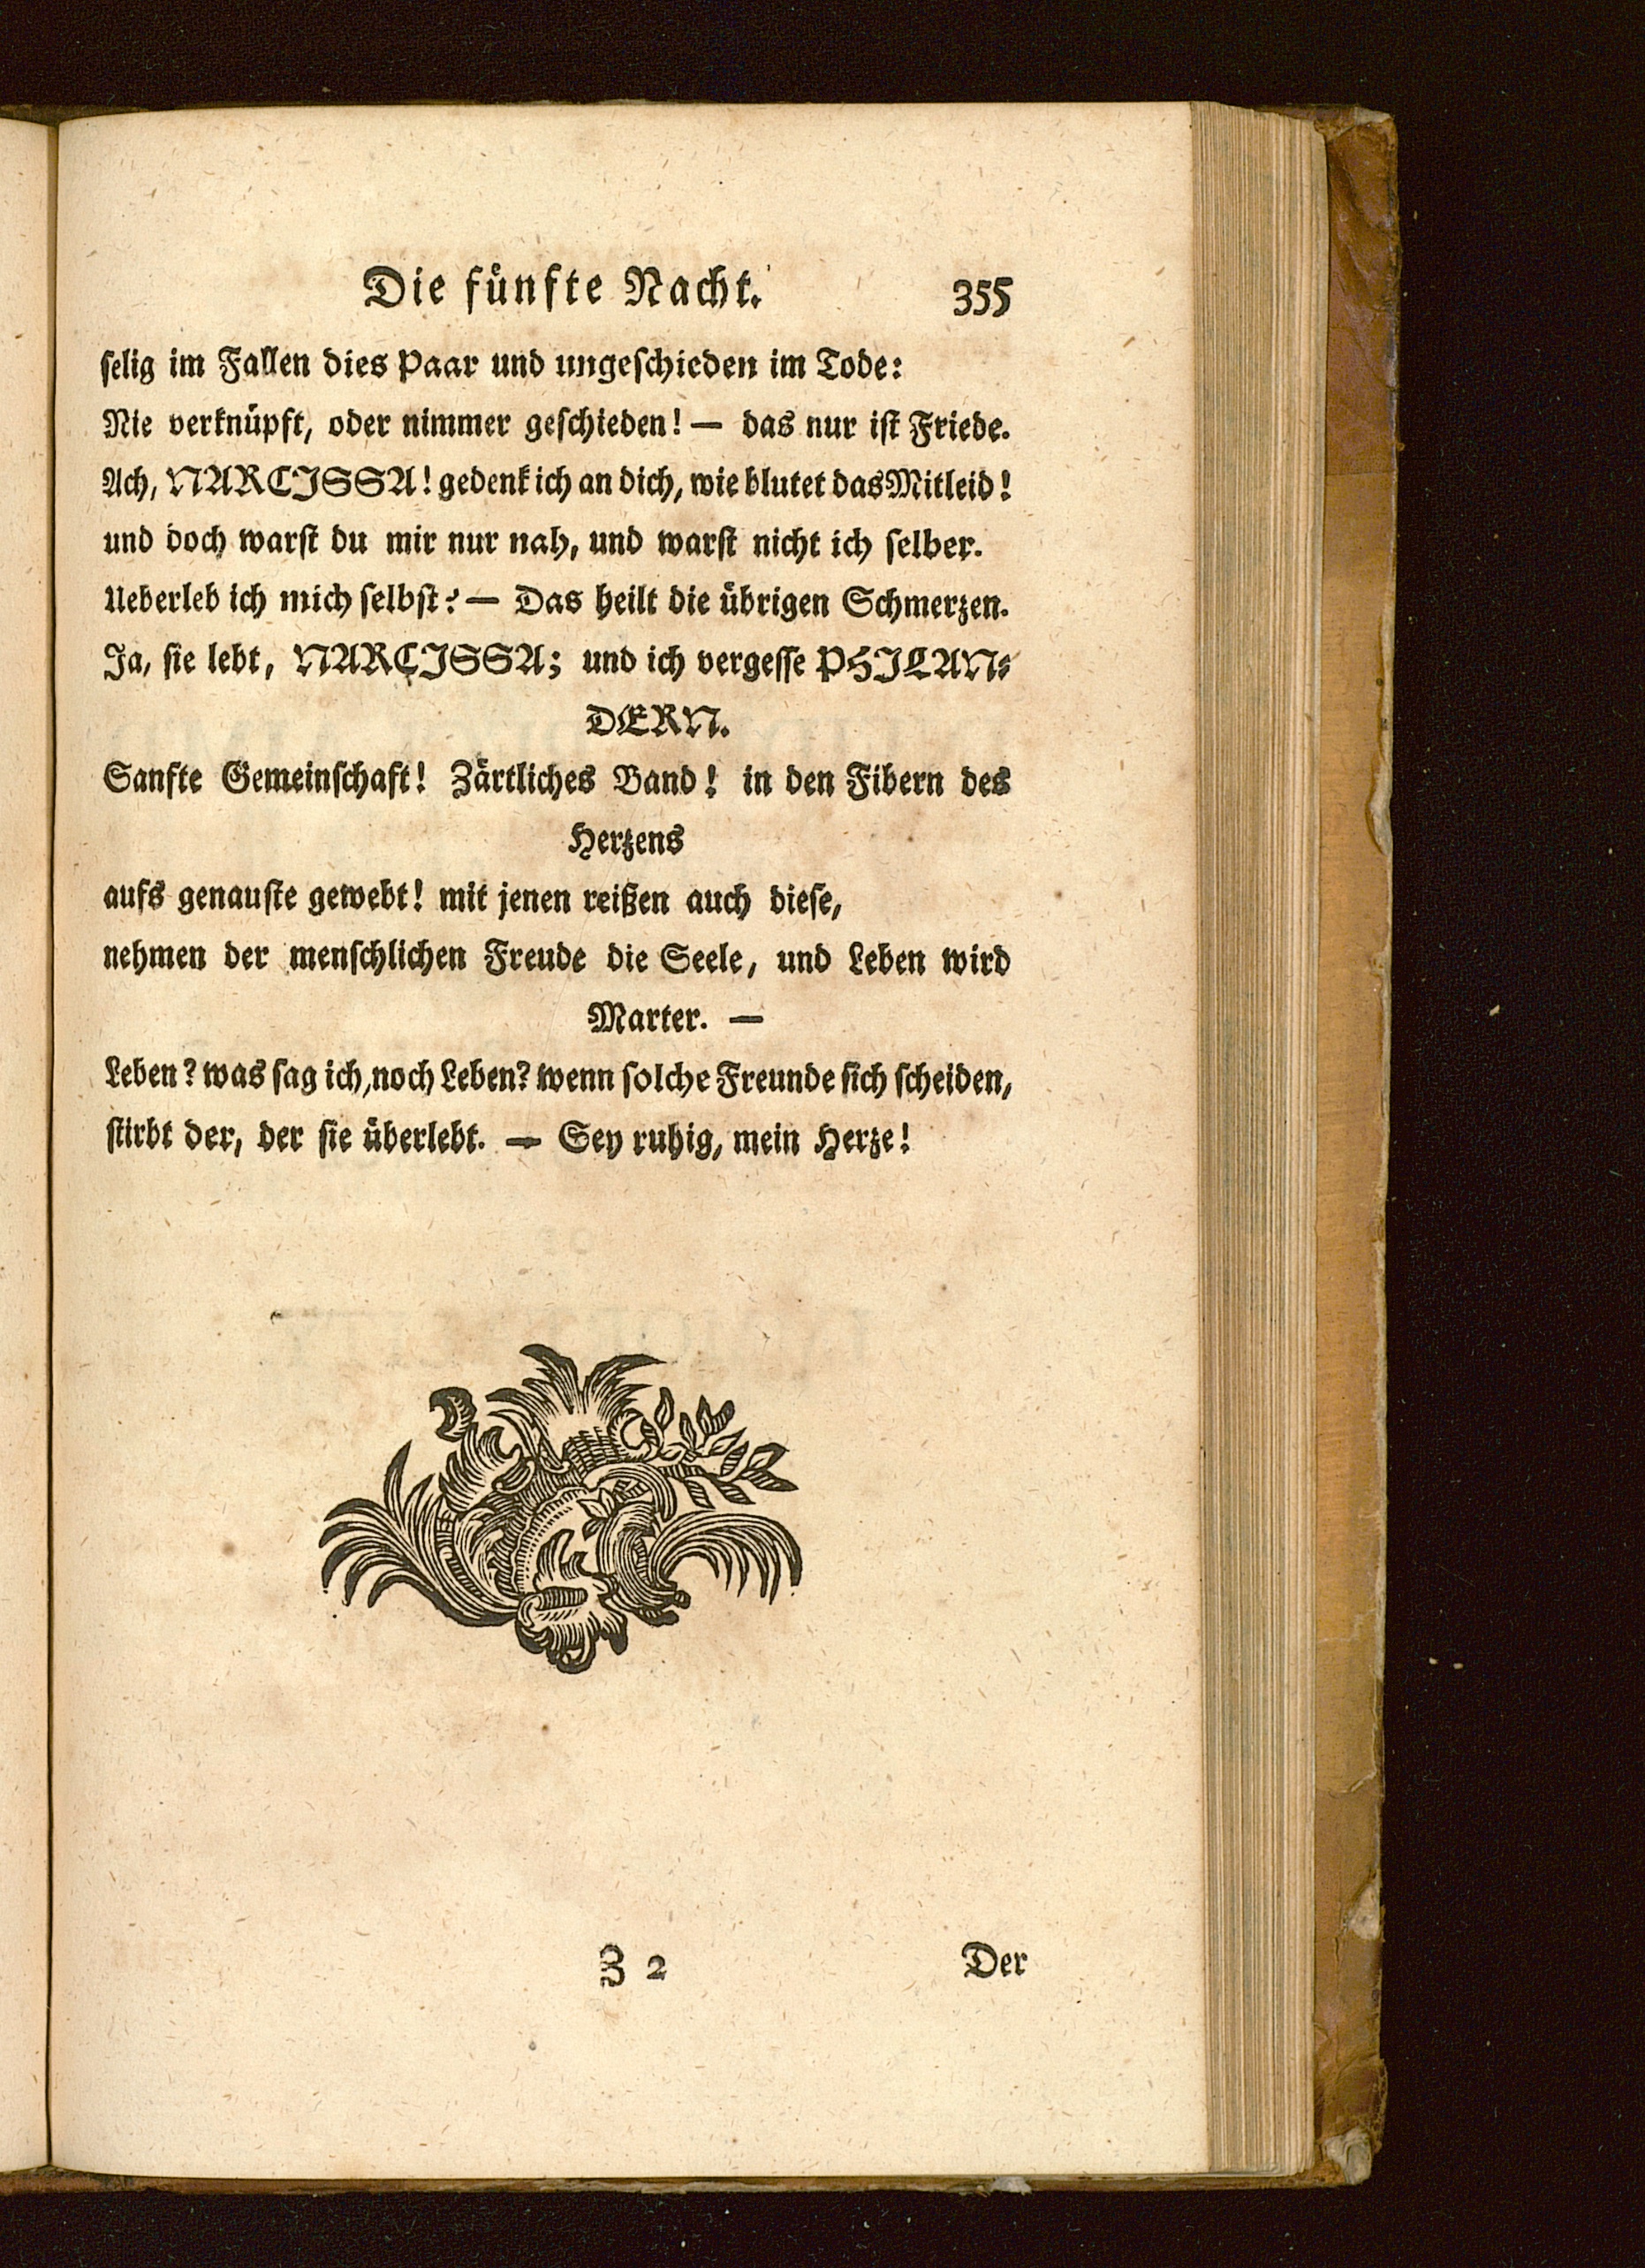 Die fünfte Nacht. 355
selig im Fallen dies Paar und ungeschieden im Tode:
Nie verknüpft, oder nimmer geschieden! — das nur ist Friede.
Ach, NARCISSA! gedenk ich an dich, wie blutet das Mitleid!
und doch warst du mir nur nah, und warst nicht ich selber.
Ueberleb ich mich selbst? — Das heilt die übrigen Schmerzen.
Ja, sie lebt, NARCISSA; und ich vergesse PHILAN-
DERN.
Sanfte Gemeinschaft! Zärtliches Band! in den Fibern des
Herzens
aufs genauste gewebt! mit jenen reißen auch diese,
nehmen der menschlichen Freude die Seele, und Leben wird
Marter. —
Leben? was sag ich, noch Leben? wenn solche Freunde sich scheiden,
stirbt der, der sie überlebt. — Sey ruhig, mein Herze!
Z 2 Der